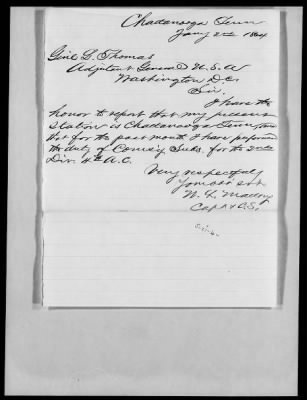 Chattanooga Tenn
Jany 2nd 1864
Genl L. Thomas
Adjutant General U.S.A
Washington D.C.
Sir,
I have the
honor to report that my present
Station is Chattanooga Tenn
that for the past month I have performed
the duty of Comsy. Subs. for the 2nd
Div. 4th A.C.
Very respectfully
Your obt svt
Capt & C.S.